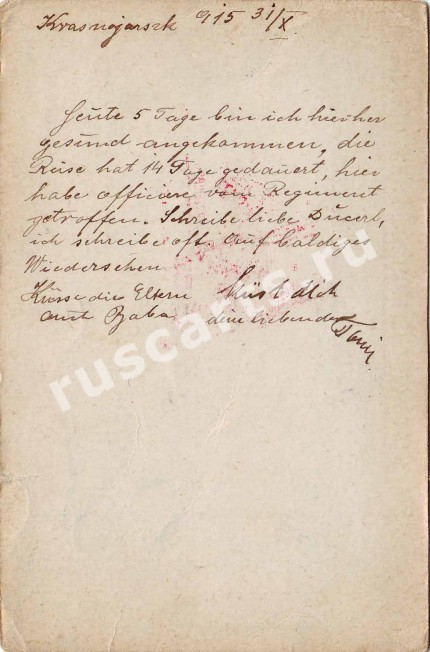 Krasnojarszk 915 31/X.
Heute 5 Tage bin ich hierher
gesund angekommen, die
Reise hat 14 Tage gedauert, hier
habe officiere vom Regiment
getroffen. Schreibe liebe Ducerl,
ich schreibe oft. Auf baldiges
Wiedersehen
Küsse die Eltern Küsst dich
und Baba dein liebender
Toni
ruscarts.ru